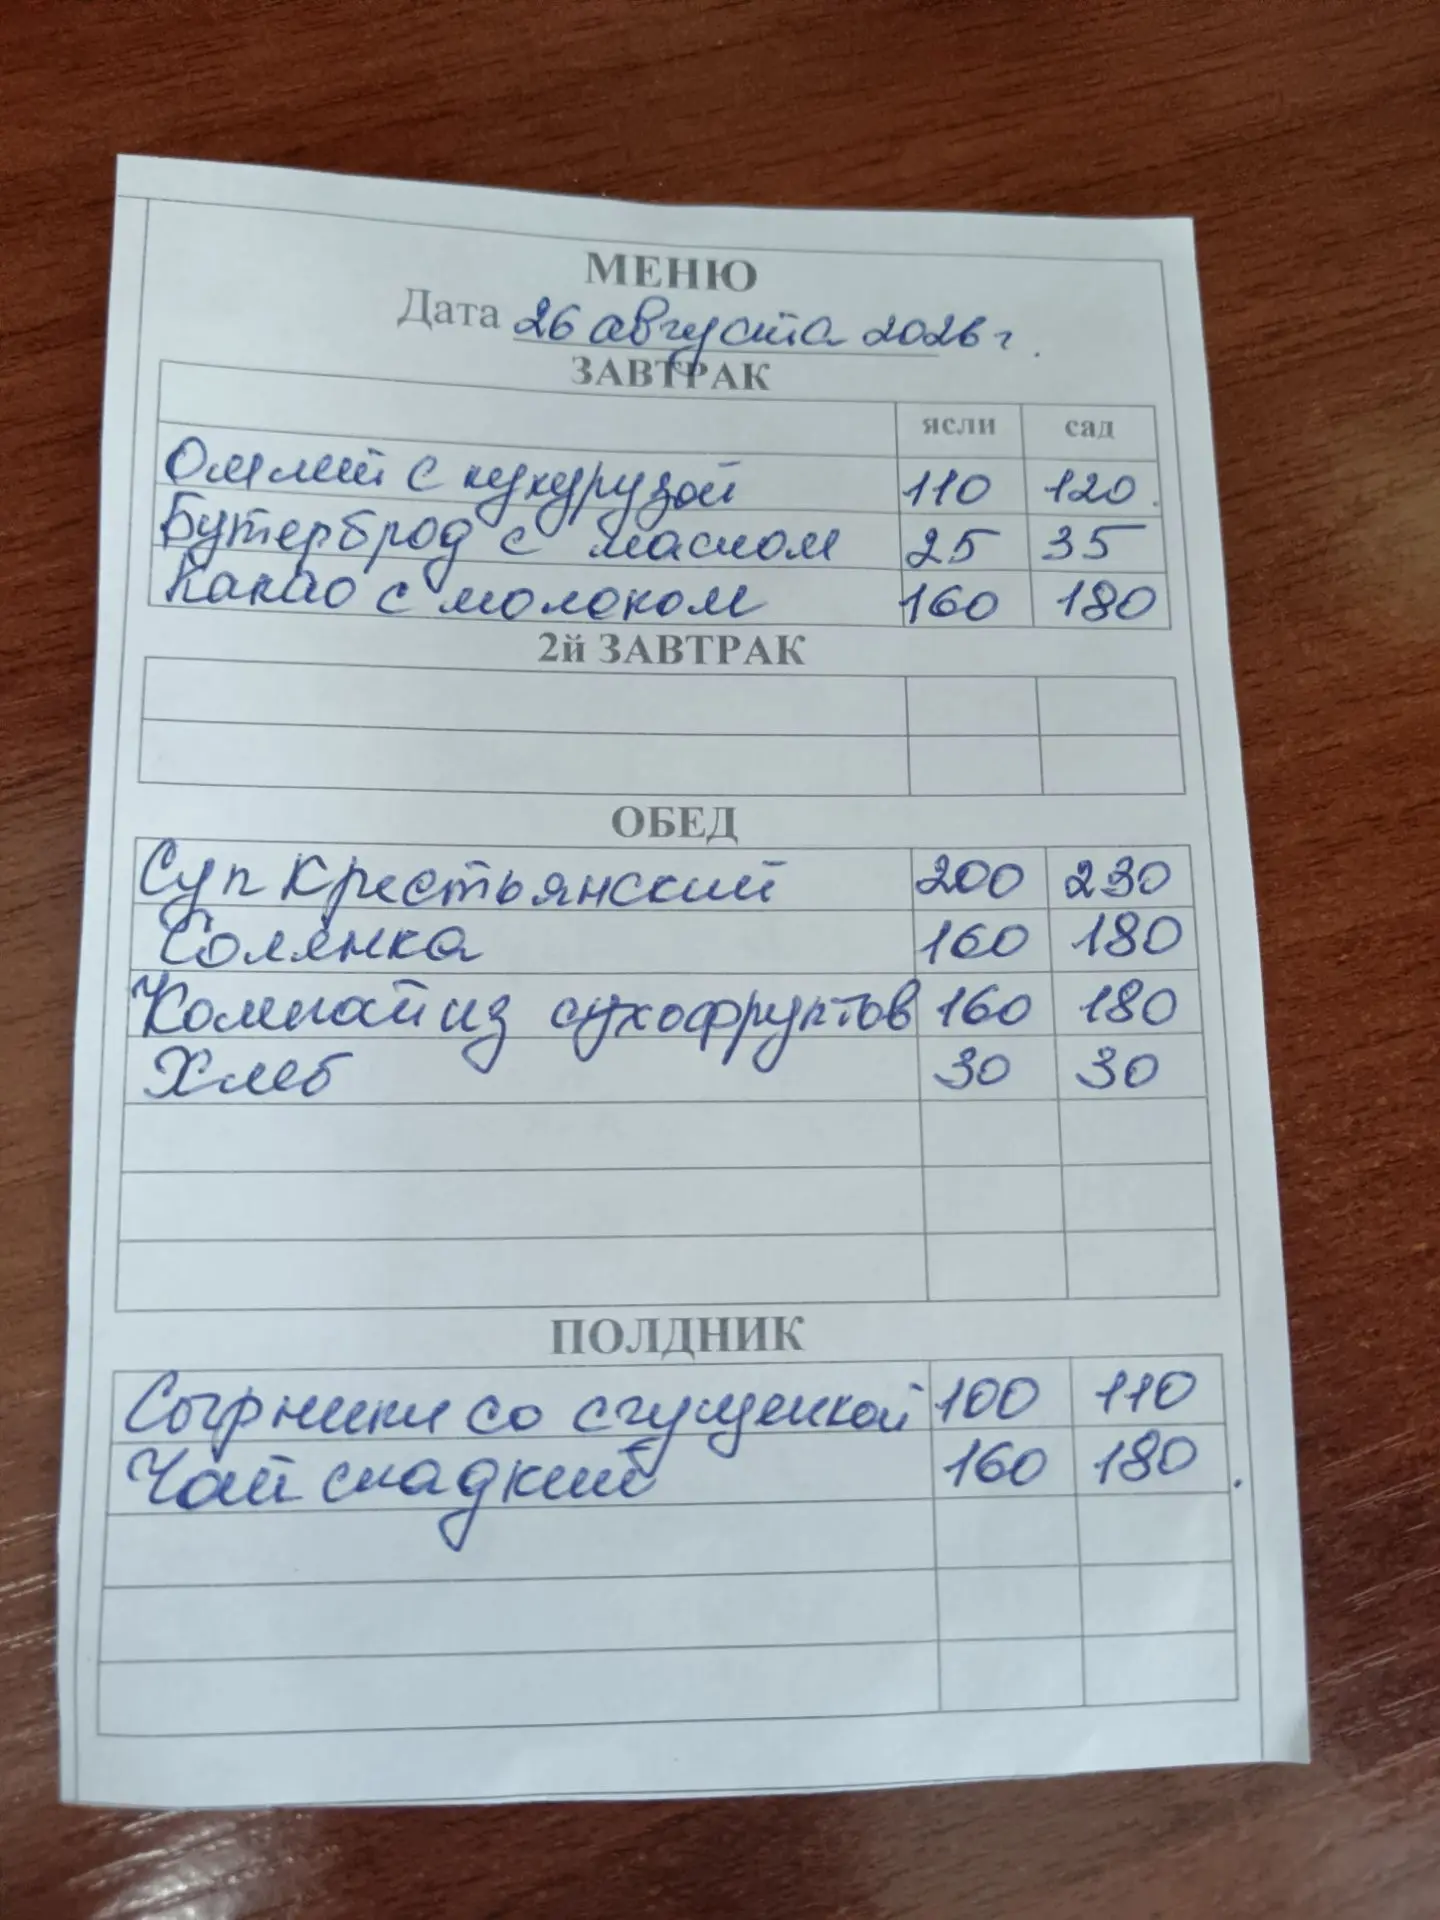 МЕНЮ
Дата 26 августа 2026 г.
ЗАВТРАК
ясли сад
Омлет с кукурузой 110 120.
Бутерброд с маслом 25 35
Какао с молоком 160 180
2й ЗАВТРАК
ОБЕД
Суп Крестьянский 200 230
Солянка 160 180
Компот из сухофруктов 160 180
Хлеб 30 30
ПОЛДНИК
Сырники со сгущенкой 100 110
Чай сладкий 160 180.